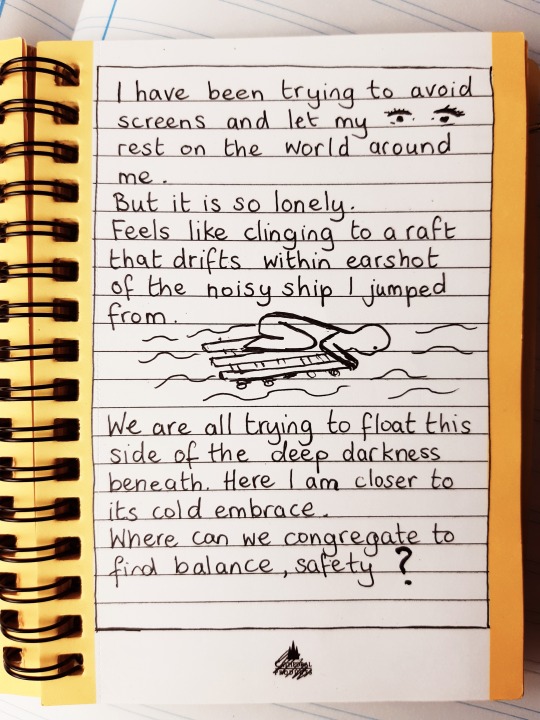 I have been trying to avoid
screens and let my
rest on the world around
me.
But it is so lonely.
Feels like clinging to a raft
that drifts within earshot
of the noisy ship I jumped
from.
We are all trying to float this
side of the deep darkness
beneath. Here I am closer to
its cold embrace.
Where can we congregate to
find balance, safety ?
CATHEDRAL
PRODUCTS